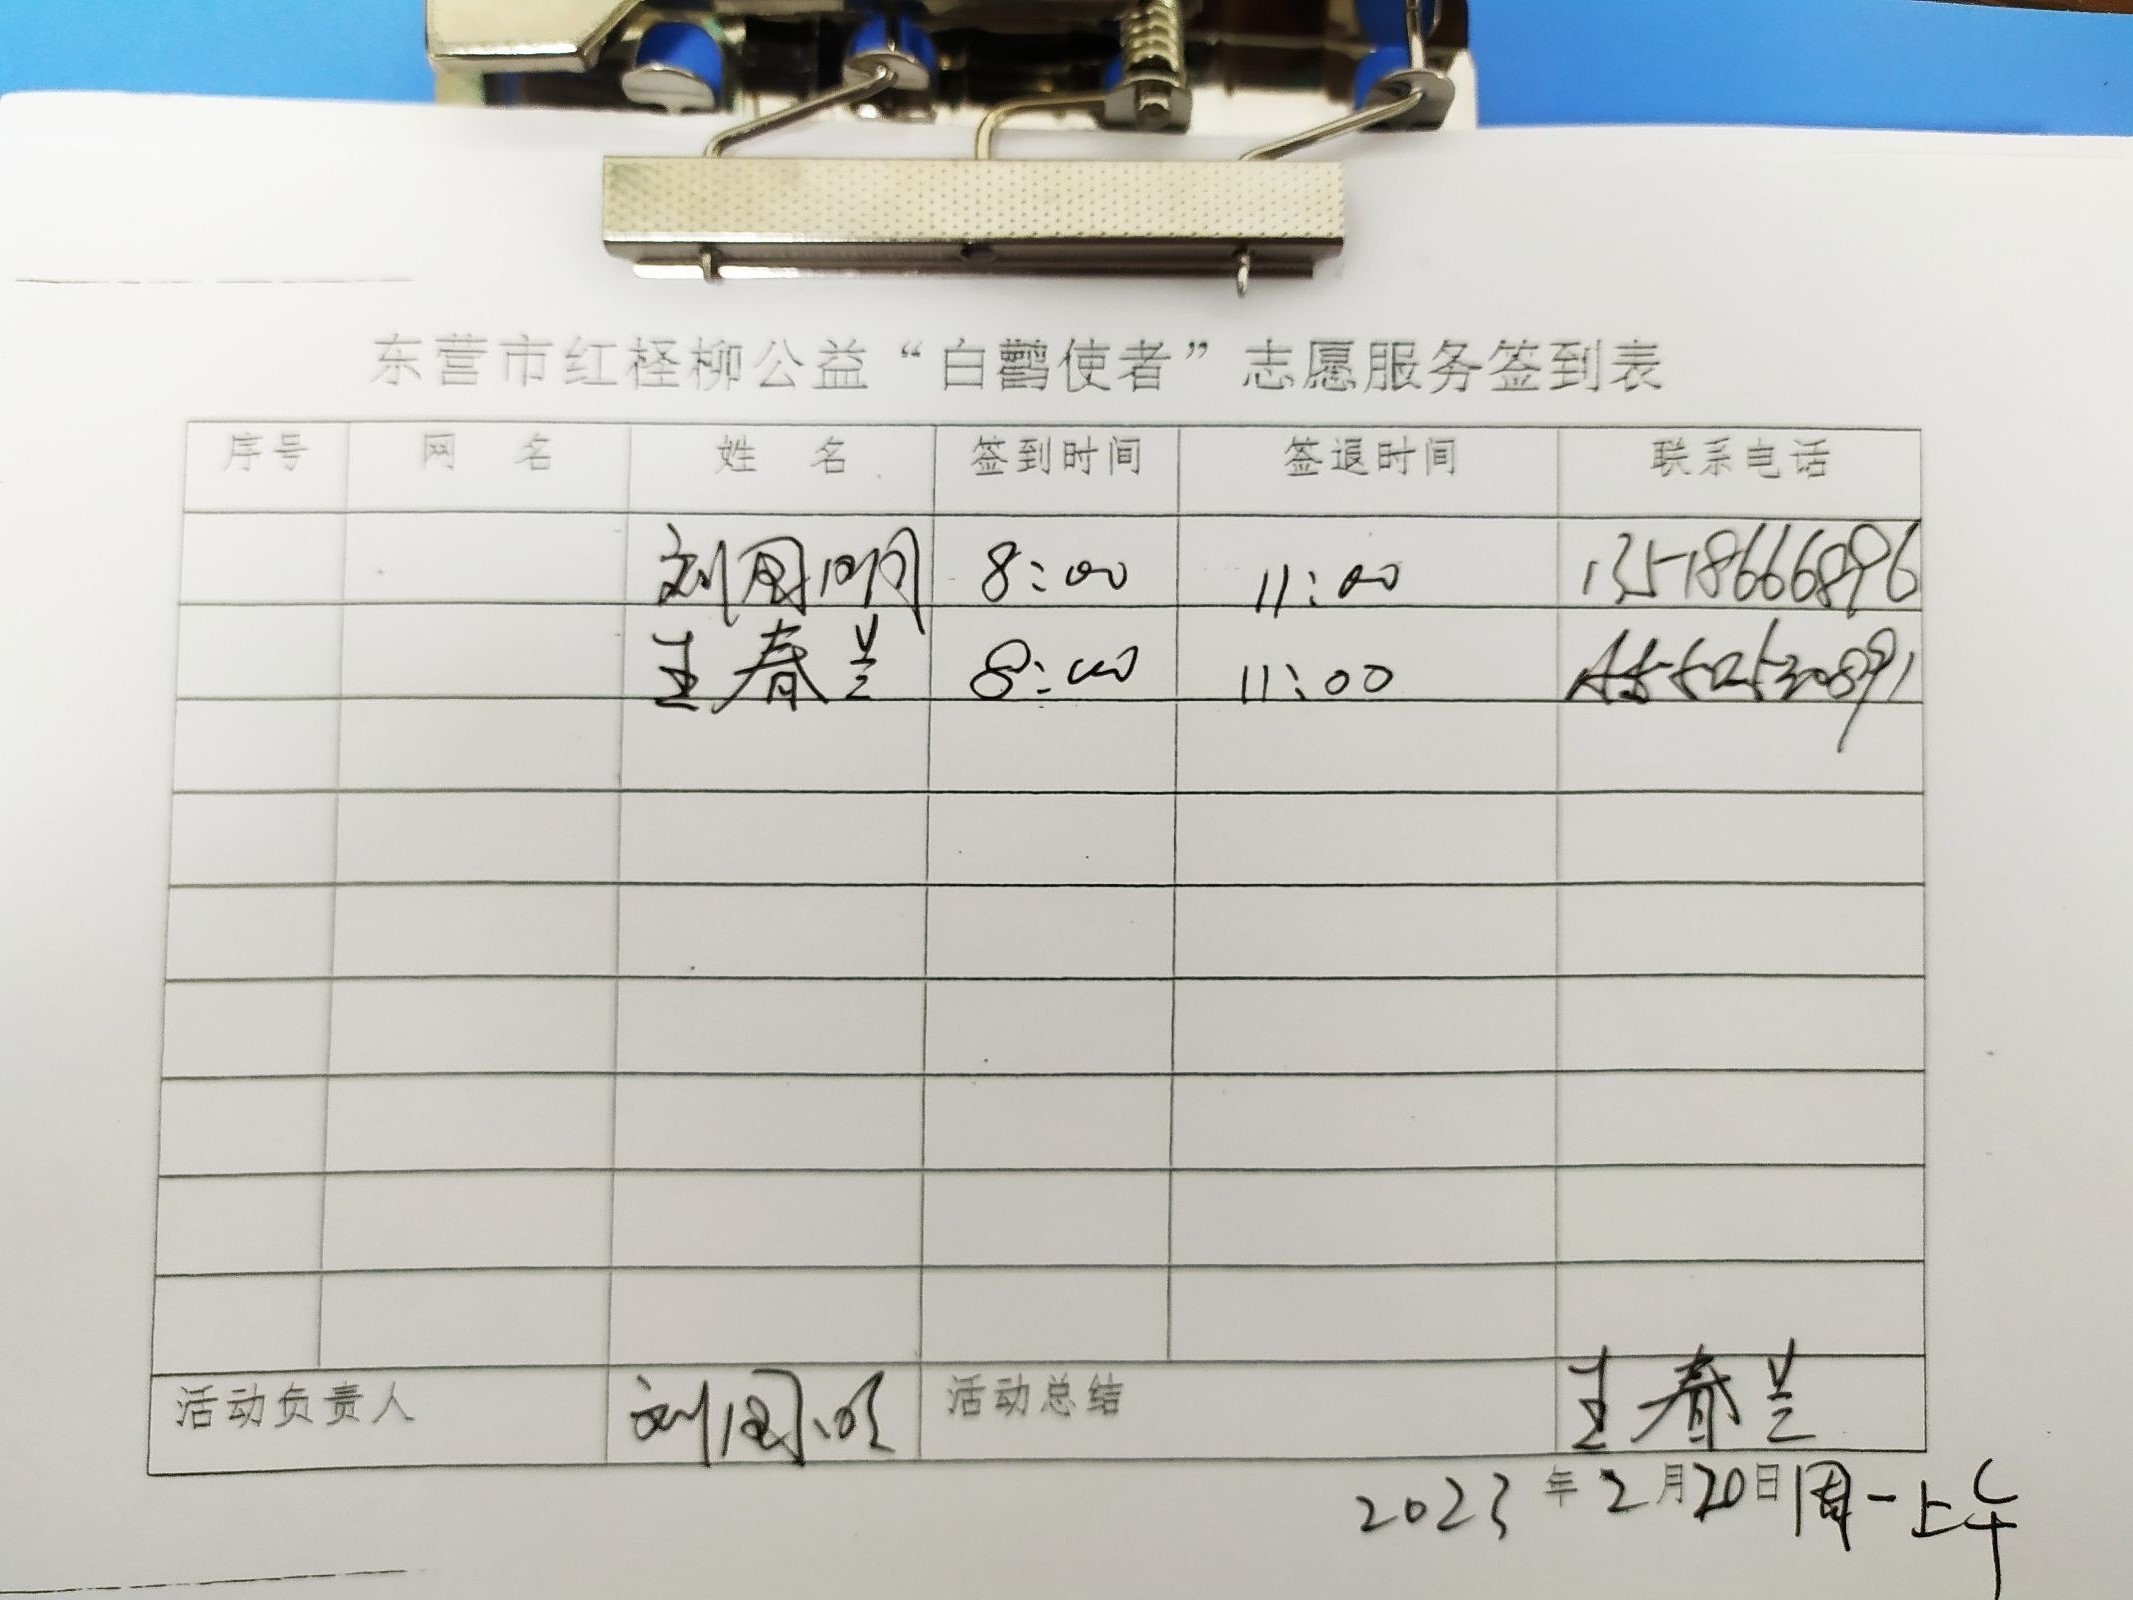 东营市红柽柳公益“白鹳使者”志愿服务签到表
序号 网 名 姓 名 签到时间 签退时间 联系电话
刘国明 8:00 11:00 13518666896
王春兰 8:00 11:00
活动负责人 刘国明 活动总结 王春兰
2023年2月20日周一上午